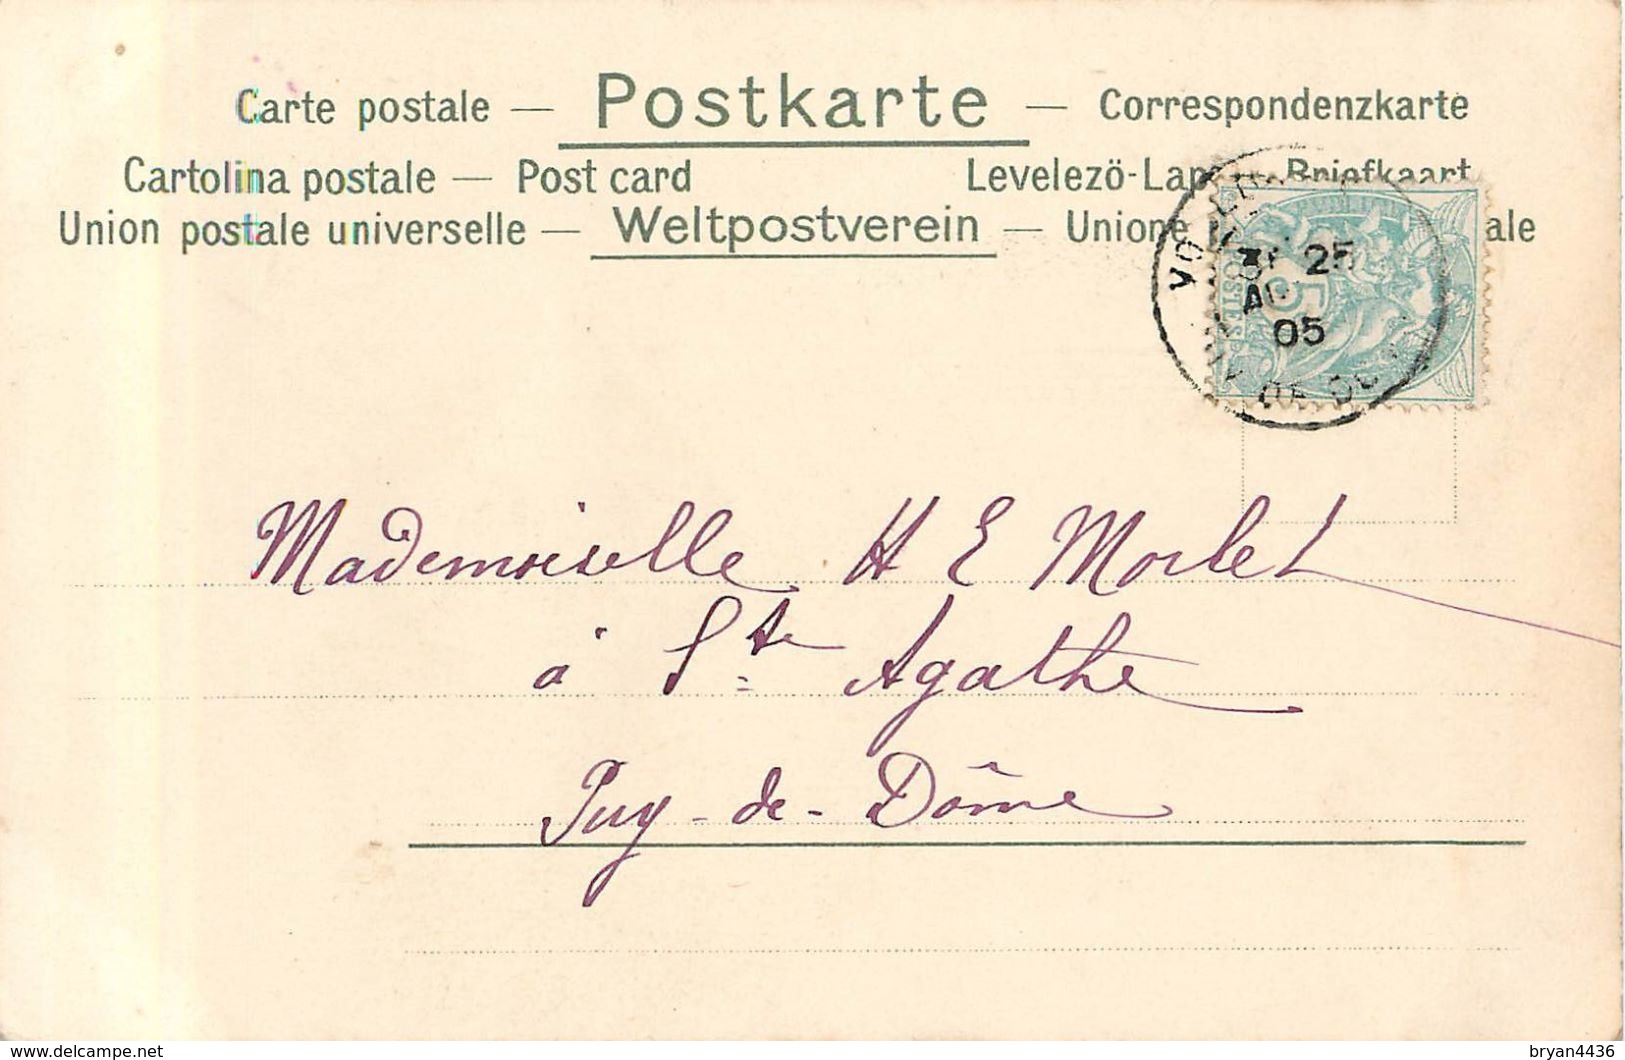 Carte postale — Postkarte — Correspondenzkarte
Cartolina postale — Post card Levelezö-Lap Briefkaart
Union postale universelle — Weltpostverein — Unione ale
25
05
5
POSTES
Mademoiselle H E Morlet
à Ste Agathe
Puy-de-Dôme
delcampe.net
bryan4436